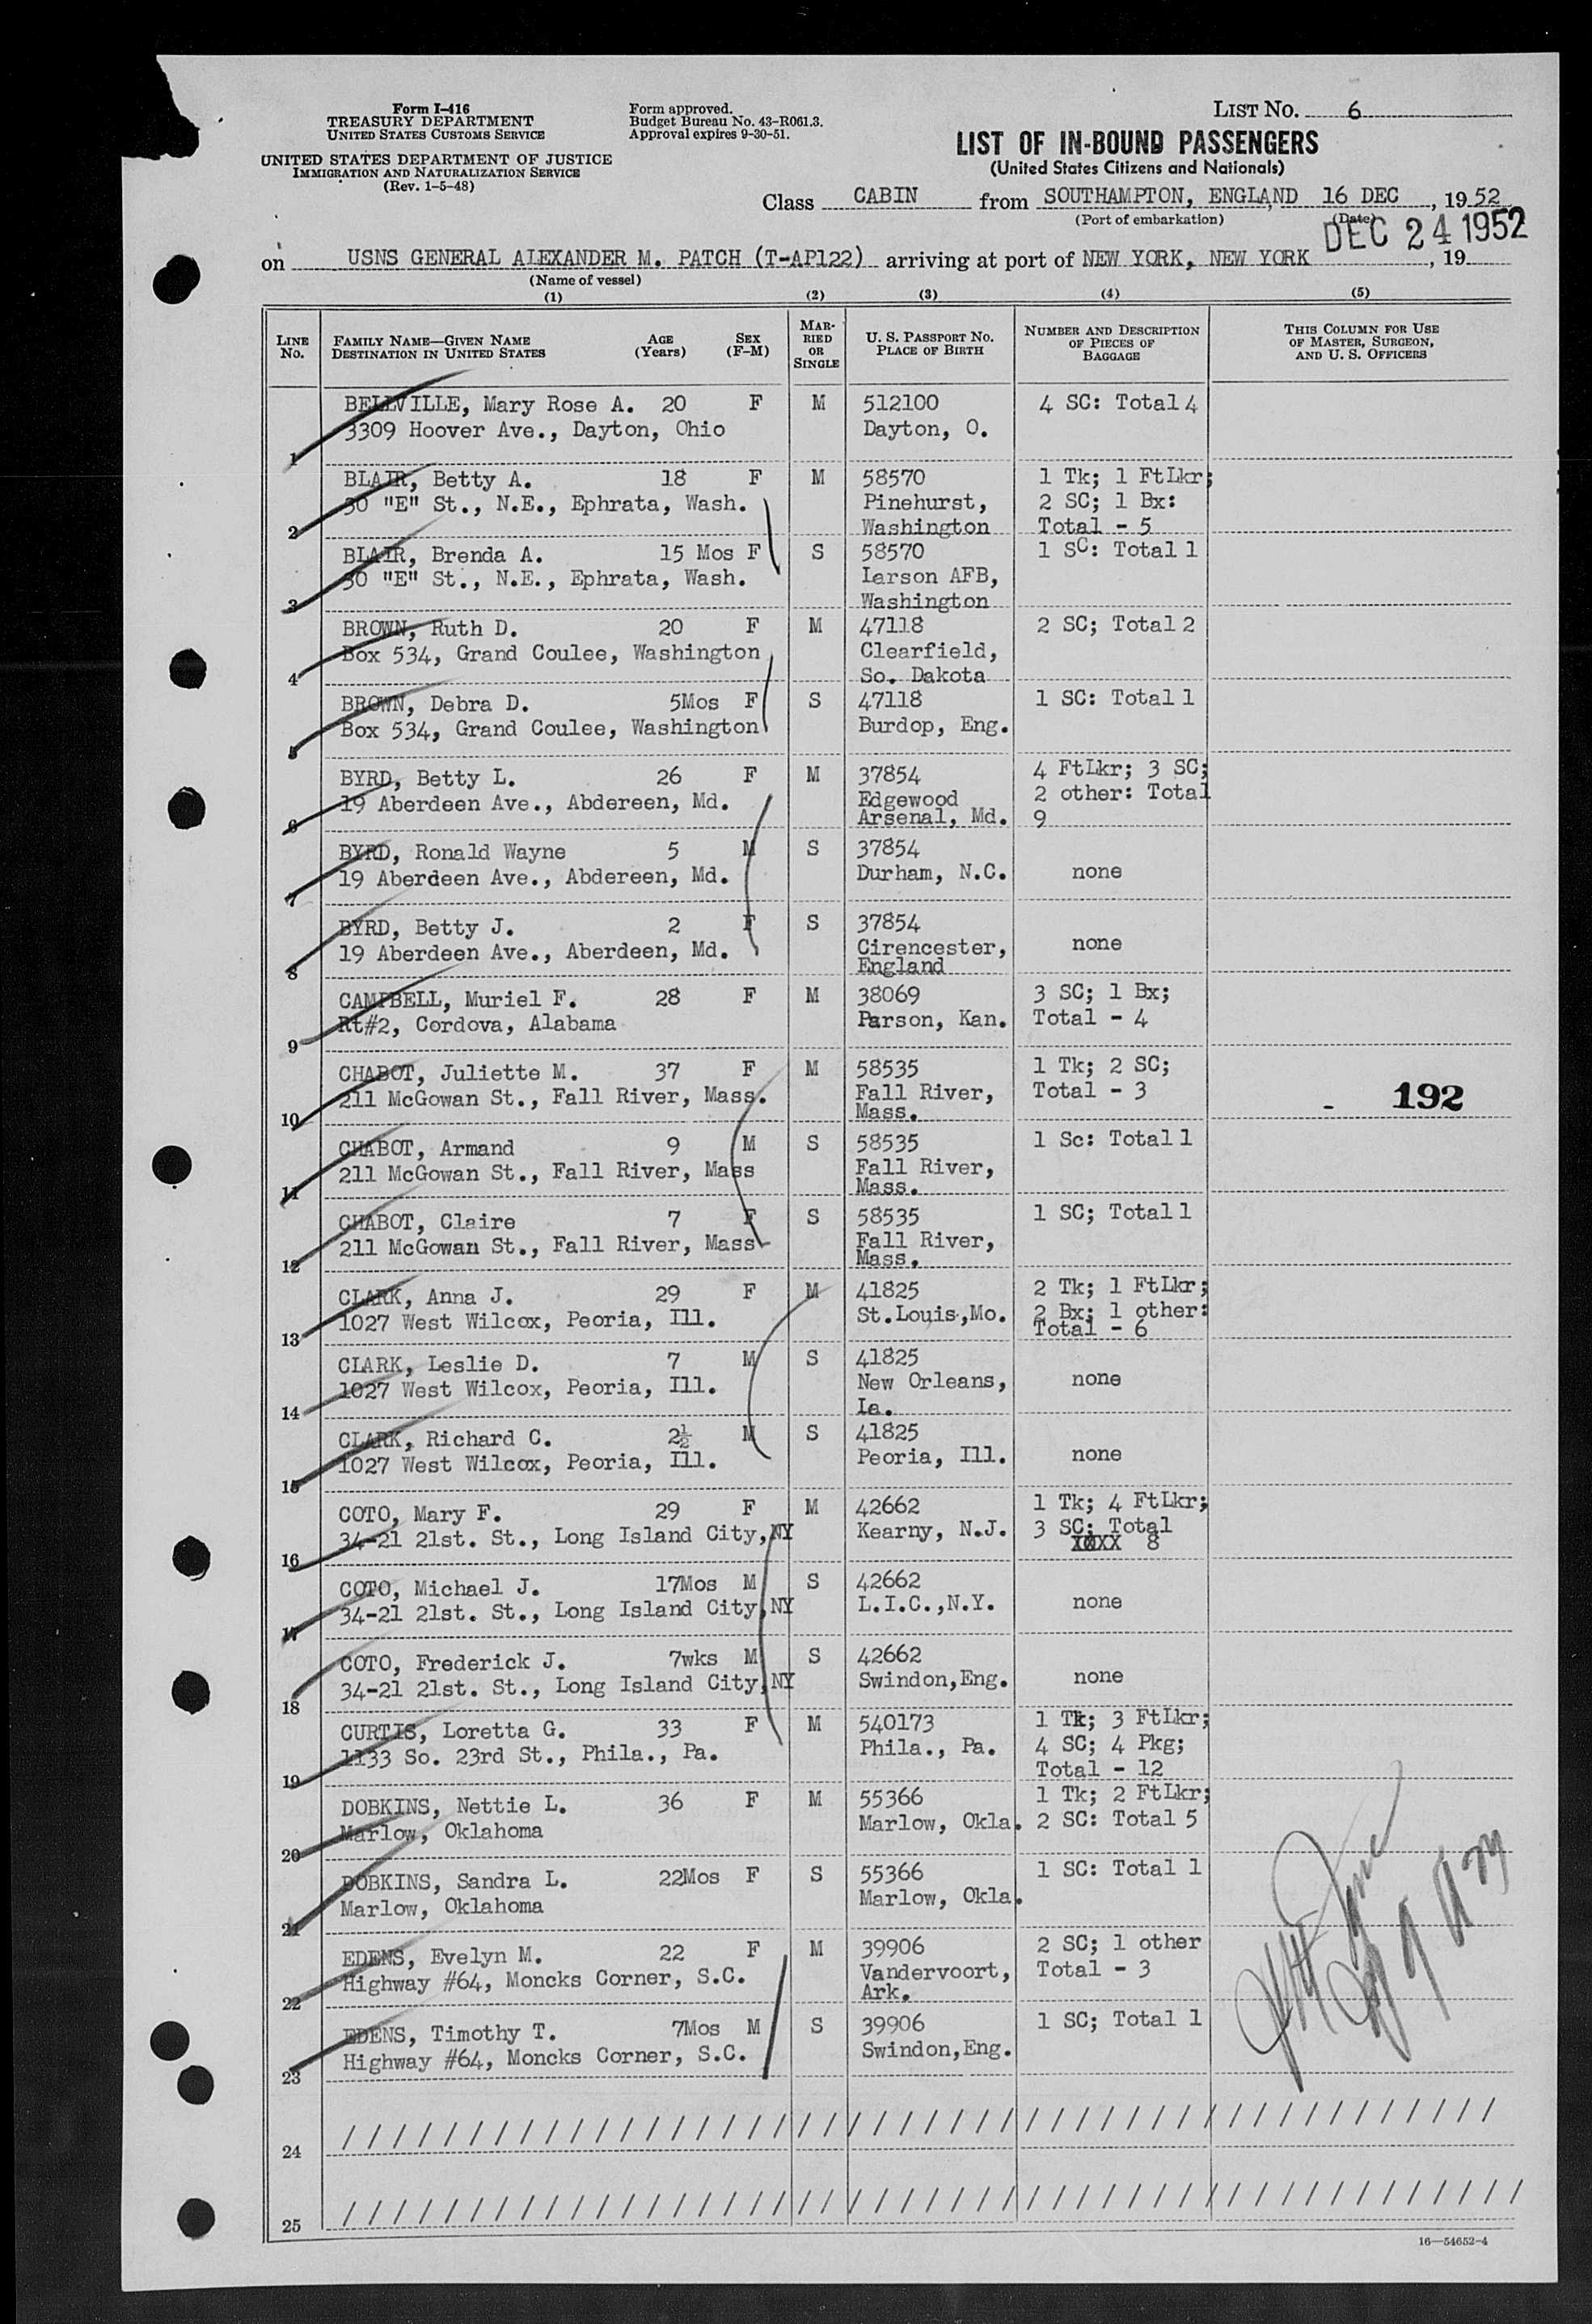 Form I-416
TREASURY DEPARTMENT
UNITED STATES CUSTOMS SERVICE
UNITED STATES DEPARTMENT OF JUSTICE
IMMIGRATION AND NATURALIZATION SERVICE
(Rev. 1-5-48)
Form approved.
Budget Bureau No. 43-R061.3.
Approval expires 9-30-51.
LIST No. 6
LIST OF IN-BOUND PASSENGERS
(United States Citizens and Nationals)
Class CABIN from SOUTHAMPTON, ENGLAND 16 DEC, 1952
(Port of embarkation) (Date)
DEC 24 1952
on USNS GENERAL ALEXANDER M. PATCH (T-AP122) arriving at port of NEW YORK, NEW YORK, 19
(Name of vessel)
(1) (2) (3) (4) (5)
LINE No. FAMILY NAME—GIVEN NAME DESTINATION IN UNITED STATES AGE (Years) SEX (F-M) MARRIED OR SINGLE U. S. PASSPORT No. PLACE OF BIRTH NUMBER AND DESCRIPTION OF PIECES OF BAGGAGE THIS COLUMN FOR USE OF MASTER, SURGEON, AND U. S. OFFICERS
BELLVILLE, Mary Rose A. 20 F M 512100 4 SC: Total 4
3309 Hoover Ave., Dayton, Ohio Dayton, O.
1
BLAIR, Betty A. 18 F M 58570 1 Tk; 1 FtLkr;
30 "E" St., N.E., Ephrata, Wash. Pinehurst, 2 SC; 1 Bx:
2 Washington Total - 5
BLAIR, Brenda A. 15 Mos F S 58570 1 SC: Total 1
30 "E" St., N.E., Ephrata, Wash. Larson AFB,
3 Washington
BROWN, Ruth D. 20 F M 47118 2 SC; Total 2
Box 534, Grand Coulee, Washington Clearfield,
4 So. Dakota
BROWN, Debra D. 5Mos F S 47118 1 SC: Total 1
Box 534, Grand Coulee, Washington Burdop, Eng.
5
BYRD, Betty L. 26 F M 37854 4 FtLkr; 3 SC;
19 Aberdeen Ave., Abdereen, Md. Edgewood 2 other: Total
6 Arsenal, Md. 9
BYRD, Ronald Wayne 5 M S 37854
19 Aberdeen Ave., Abdereen, Md. Durham, N.C. none
7
BYRD, Betty J. 2 F S 37854
19 Aberdeen Ave., Aberdeen, Md. Cirencester, none
8 England
CAMPBELL, Muriel F. 28 F M 38069 3 SC; 1 Bx;
Rt#2, Cordova, Alabama Parson, Kan. Total - 4
9
CHABOT, Juliette M. 37 F M 58535 1 Tk; 2 SC;
211 McGowan St., Fall River, Mass. Fall River, Total - 3 - 192
10 Mass.
CHABOT, Armand 9 M S 58535 1 Sc: Total 1
211 McGowan St., Fall River, Mass Fall River,
11 Mass.
CHABOT, Claire 7 F S 58535 1 SC; Total 1
211 McGowan St., Fall River, Mass Fall River,
12 Mass.
CLARK, Anna J. 29 F M 41825 2 Tk; 1 FtLkr;
1027 West Wilcox, Peoria, Ill. St.Louis,Mo. 2 Bx; 1 other:
13 Total - 6
CLARK, Leslie D. 7 M S 41825
1027 West Wilcox, Peoria, Ill. New Orleans, none
14 La.
CLARK, Richard C. 2½ M S 41825
1027 West Wilcox, Peoria, Ill. Peoria, Ill. none
15
COTO, Mary F. 29 F M 42662 1 Tk; 4 FtLkr;
34-21 21st. St., Long Island City,NY Kearny, N.J. 3 SC: Total
16 XXXX 8
COTO, Michael J. 17Mos M S 42662
34-21 21st. St., Long Island City,NY L.I.C.,N.Y. none
17
COTO, Frederick J. 7wks M S 42662
34-21 21st. St., Long Island City,NY Swindon,Eng. none
18
CURTIS, Loretta G. 33 F M 540173 1 Tk; 3 FtLkr;
1133 So. 23rd St., Phila., Pa. Phila., Pa. 4 SC; 4 Pkg;
19 Total - 12
DOBKINS, Nettie L. 36 F M 55366 1 Tk; 2 FtLkr;
Marlow, Oklahoma Marlow, Okla. 2 SC: Total 5
20
DOBKINS, Sandra L. 22Mos F S 55366 1 SC: Total 1
Marlow, Oklahoma Marlow, Okla.
21
EDENS, Evelyn M. 22 F M 39906 2 SC; 1 other
Highway #64, Moncks Corner, S.C. Vandervoort, Total - 3
22 Ark.
EDENS, Timothy T. 7Mos M S 39906 1 SC; Total 1
Highway #64, Moncks Corner, S.C. Swindon,Eng.
23
24
25
16—54652-4